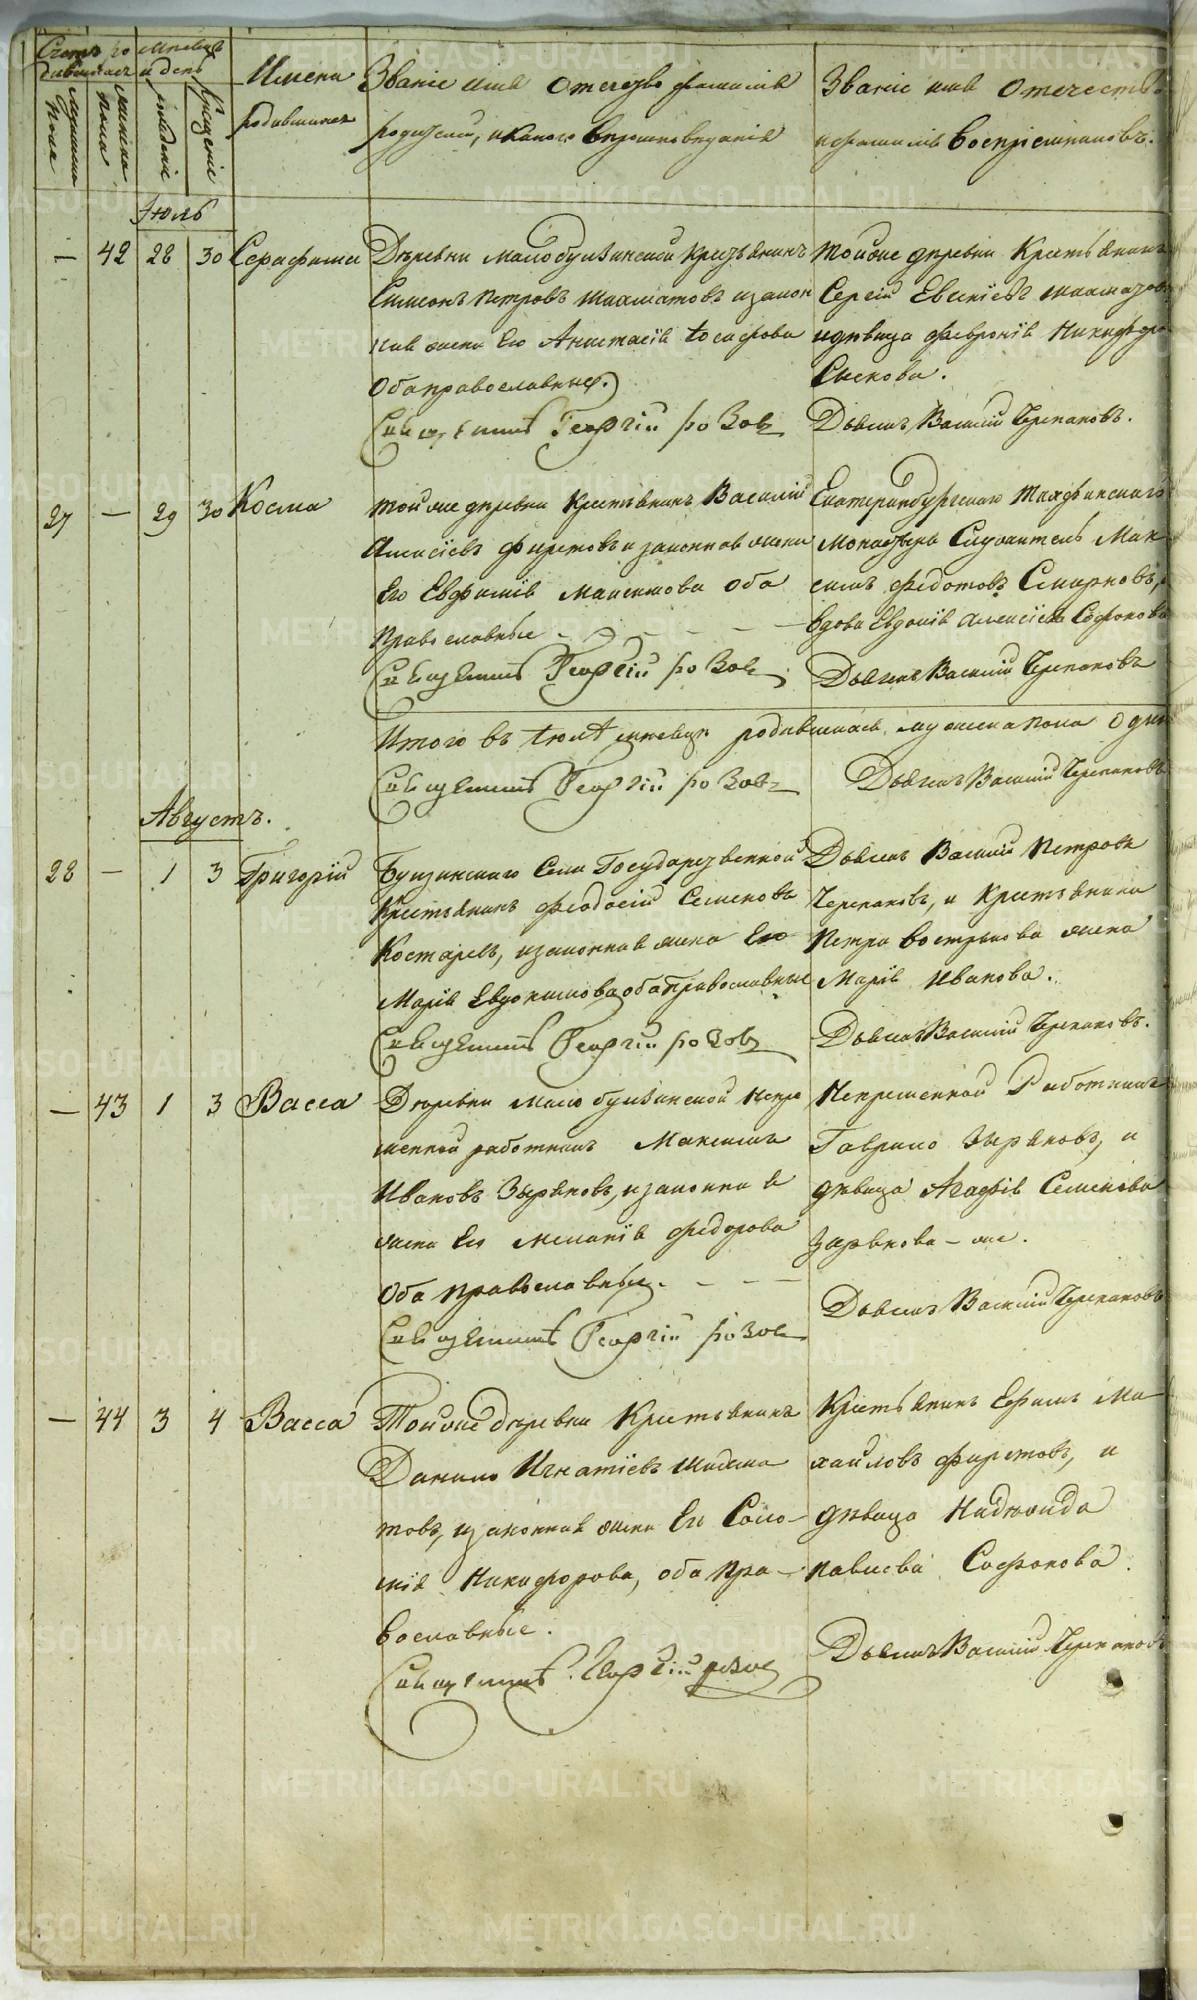 Счетъ ро
дившихся
Мужеска
пола
Женска
пола
Мѣсяцъ
и день
рожденіе
крещеніе
Имена
родившихся
Званіе имя отечество фамилія
родителей, и какого вѣроисповѣданія
Званіе имя отечество
и фамилія воспріемниковъ.
Іюль
— 42 28 30 Серафима
Деревни Малобулзинской крестьянинъ
Симеонъ Петровъ Шахматовъ и закон
ная жена Его Анастасія
Оба православные.
Священникъ Георгій розовъ
Той же деревни Крестьянинъ
Сергій Шахматовъ
и дѣвица Февронія Никифоро
Сыскова.
Дьячекъ Василій Черепановъ.
27 — 29 30 Косма
Той же деревни Крестьянинъ Василій
Алексіевъ Фирстовъ и законная жена
Его Евфимія Максимова Оба
Православные
Священникъ Георгій розовъ
Екатеринбургскаго Тихвинскаго
Монастыря Служитель Мак
симъ Федотовъ Смирновъ, и
вдова Евдокія Алексіева Софонова
Дьячекъ Василій Черепановъ
Итого въ Іюлѣ мѣсяцѣ родившихся мужеска пола
Священникъ Георгій розовъ
Дьячекъ Василій Черепановъ
Августъ.
28 — 1 3 Григорій
Булзинскаго Села Государственной
Крестьянинъ Феодосій Семеновъ
Костаревъ, и законная жена Его
Марія Евдокимова оба Православные
Священникъ Георгій розовъ
Дьячекъ Василій Петровъ
Черепановъ, и Крестьянина
Петра Вострякова жена
Марія Иванова.
Дьячекъ Василій Черепановъ.
— 43 1 3 Васса
Деревни Мало булзинской Непре
менной работникъ Максимъ
Ивановъ Зыряновъ, и законная
жена Его Меланія Федорова
Оба Православные.
Священникъ Георгій розовъ
Непременной Работникъ
Гаврило Зыряновъ, и
дѣвица Агафія Семенова
Зырянова — же.
Дьячекъ Василій Черепановъ
— 44 3 4 Васса
Той же деревни Крестьянинъ
Данило Игнатіевъ Шахма
товъ, и законная жена Его Соло-
мія Никифорова, оба Пра-
вославные.
Священникъ Георгій розовъ
Крестьянинъ Ефимъ Ми-
хайловъ Фирстовъ, и
дѣвица Надежда
Павлова Софонова.
Дьячекъ Василій Черепановъ
METRIKI.GASO-URAL.RU